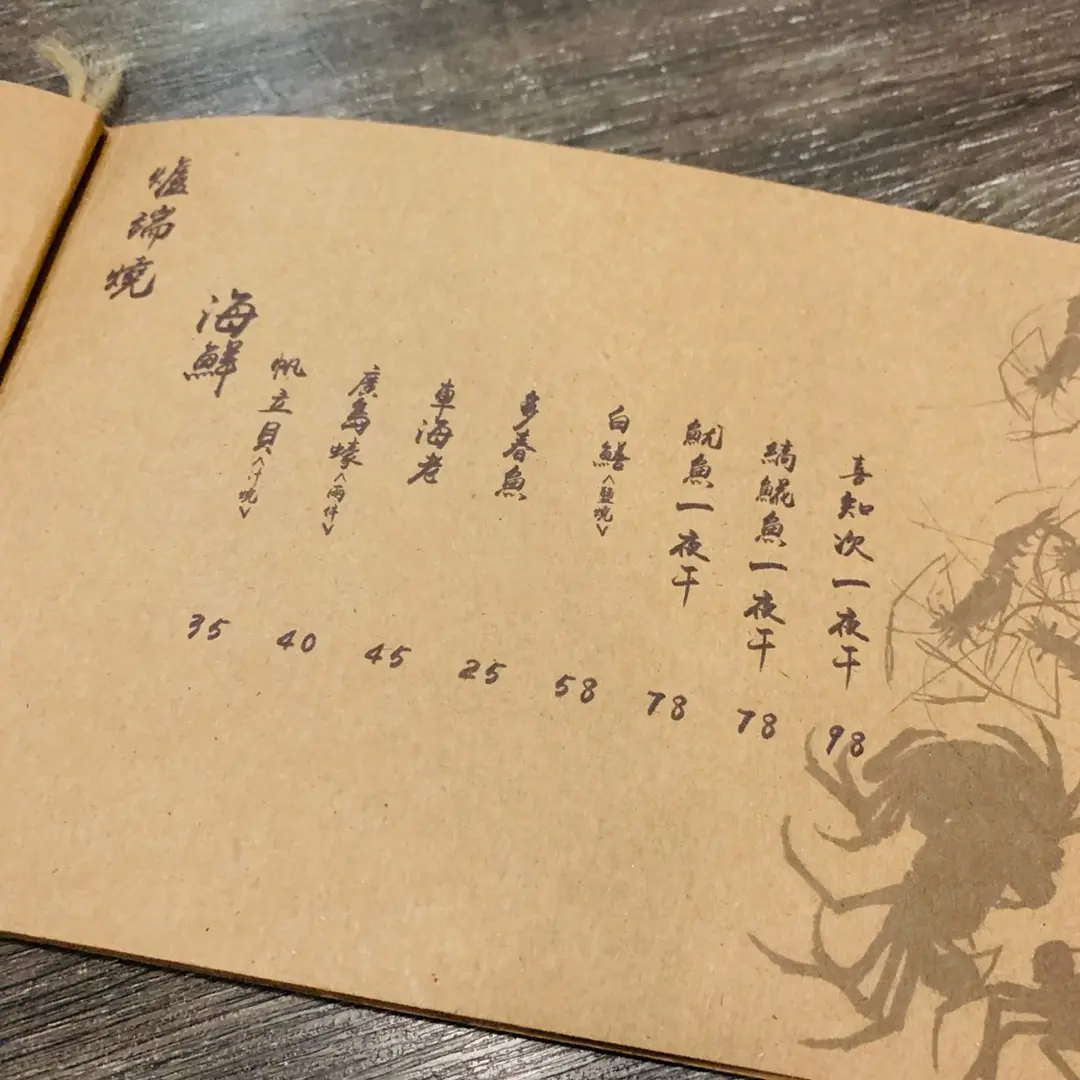 爐端燒
海鮮
帆立貝<汁燒>
35
廣島蠔<兩件>
40
車海老
45
多春魚
25
白鱔<鹽燒>
58
魷魚一夜干
78
縞鯤魚一夜干
78
喜知次一夜干
98